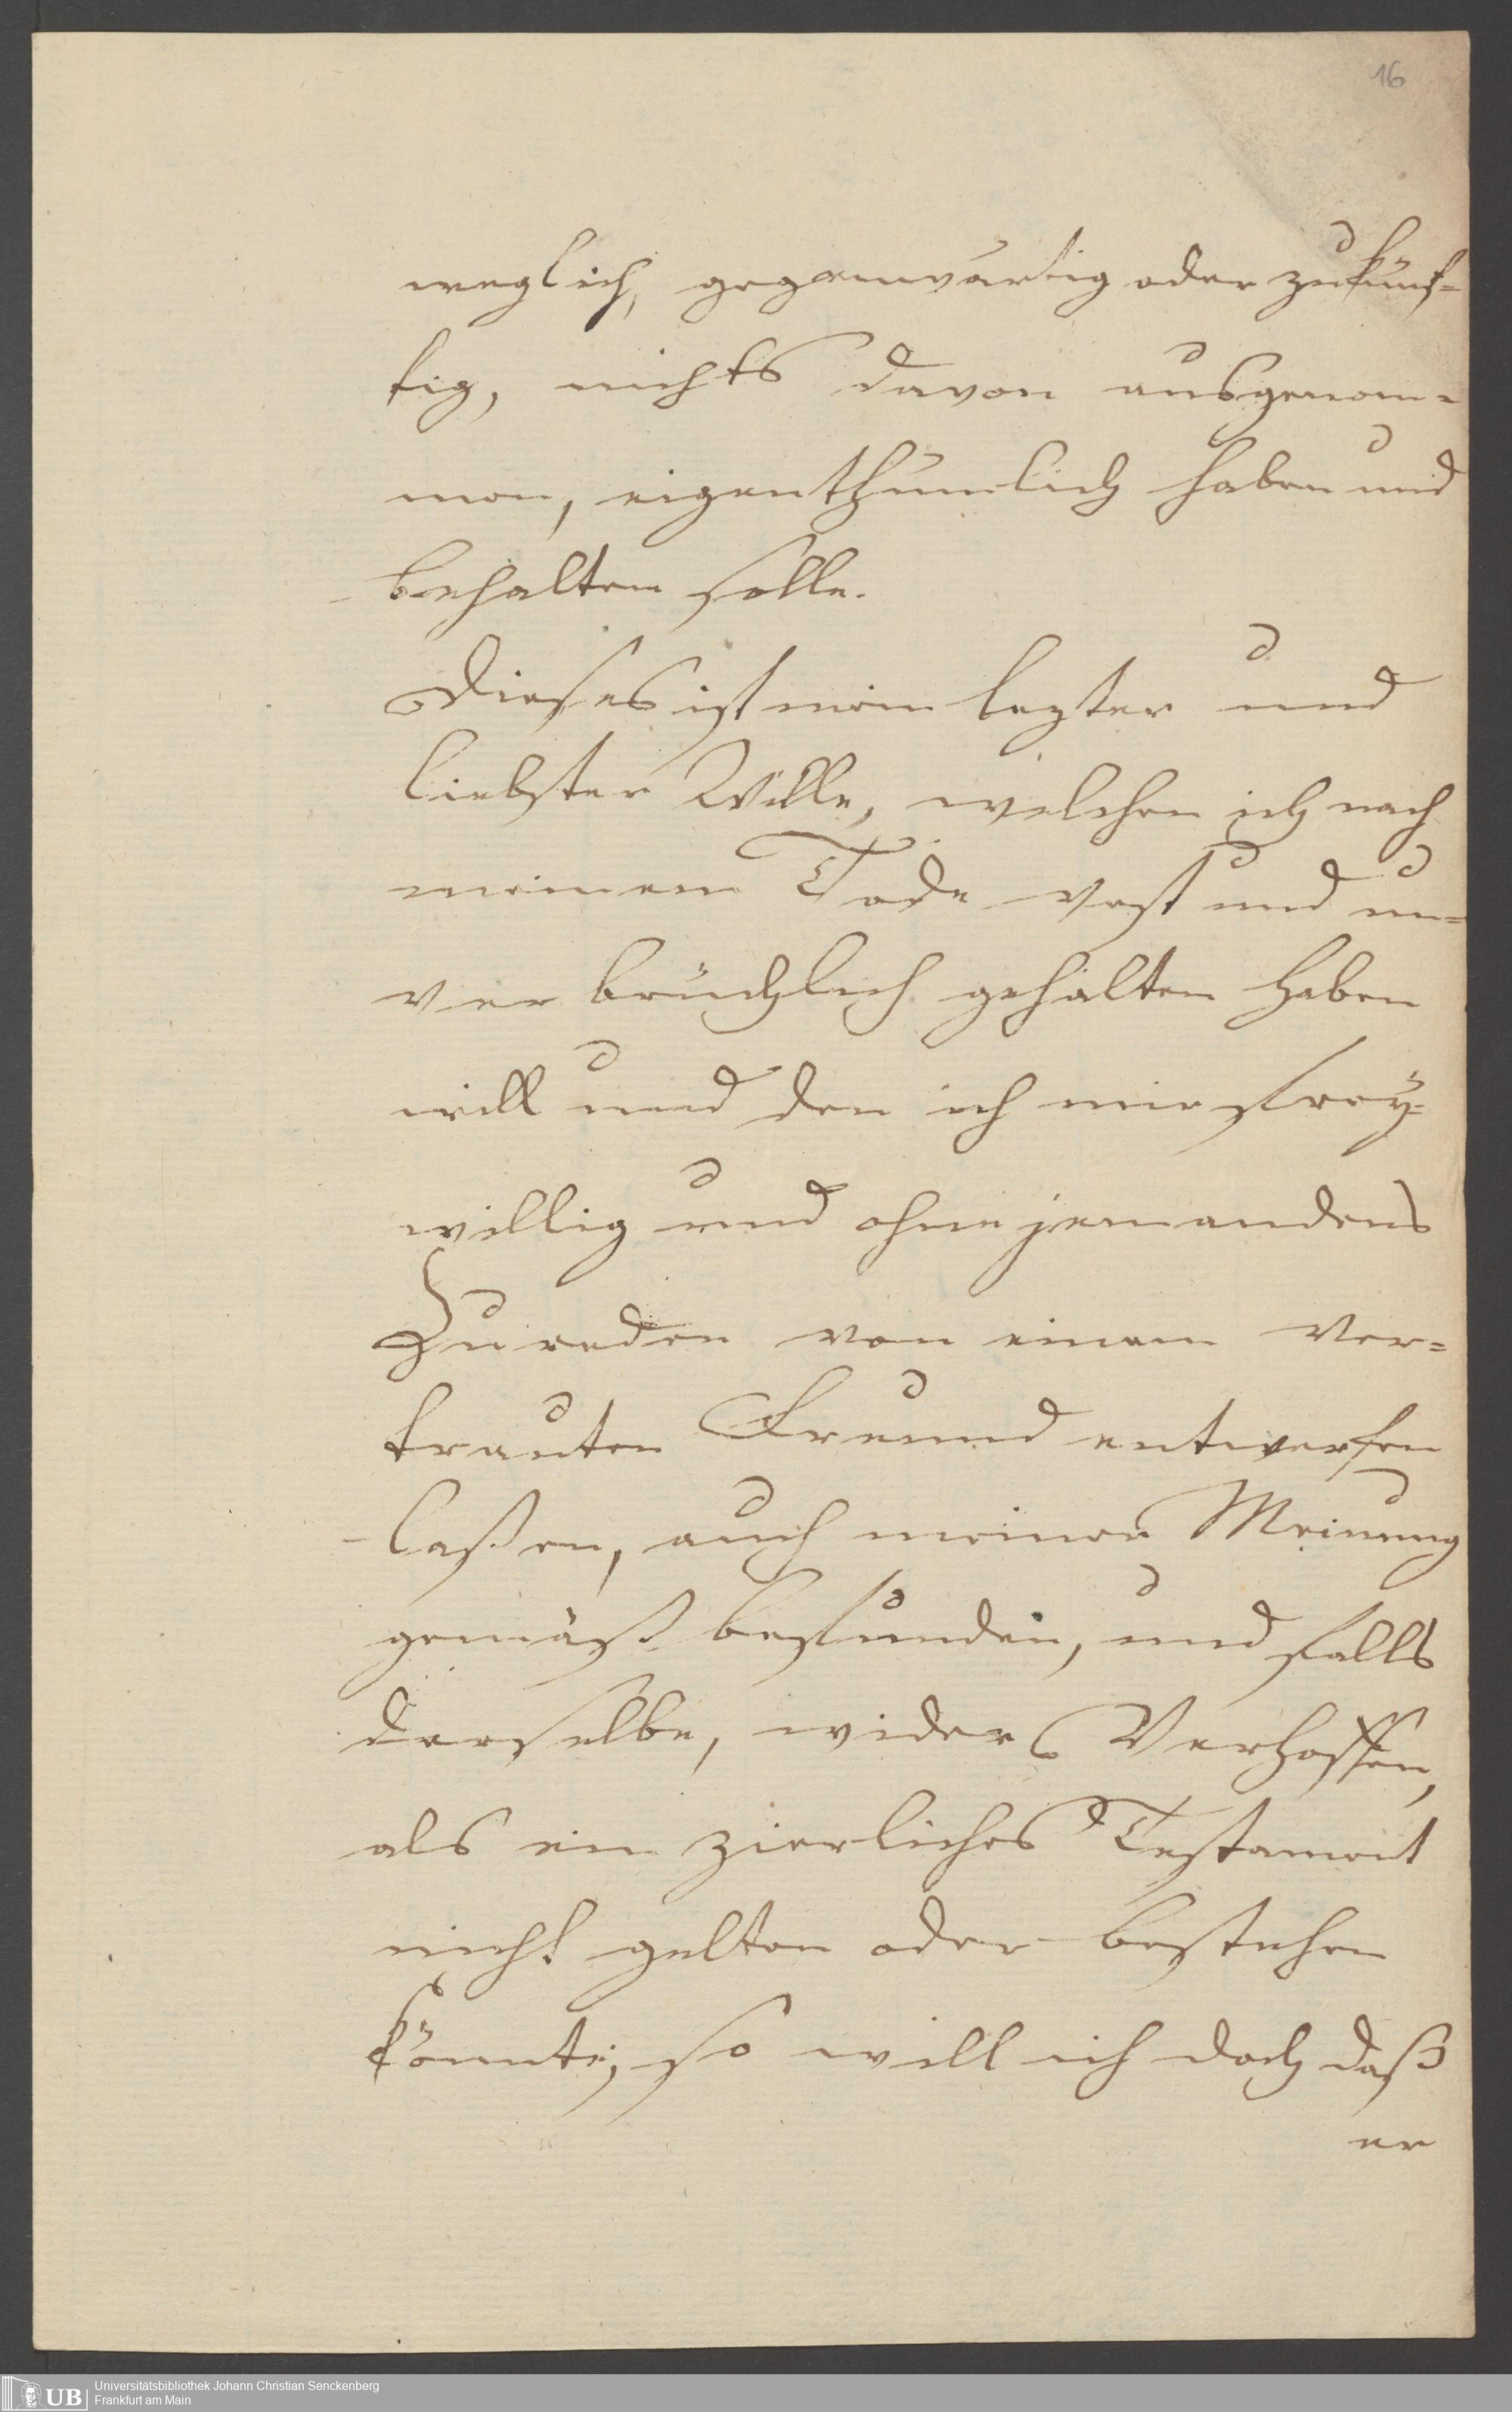 16
weglich, gegenwärtig oder zukünf=
tig, nichts davon ausgenom=
men, eigenthümlich haben und
behalten solle.
Dieses ist mein lezter und
liebster Wille, welchen ich nach
meinem Tode vest und un=
verbrüchlich gehalten haben
will und den ich mir frey=
willig und ohne jemandens
Zureden von einem Ver=
trauten Freund entwerfen
laßen, auch meiner Meinung
gemäß befunden, und falls
derselbe, wider Verhoffen,
als ein zierliches Testament
nicht gelten oder bestehen
könnte, so will ich doch daß
er
UB
Universitätsbibliothek Johann Christian Senckenberg
Frankfurt am Main